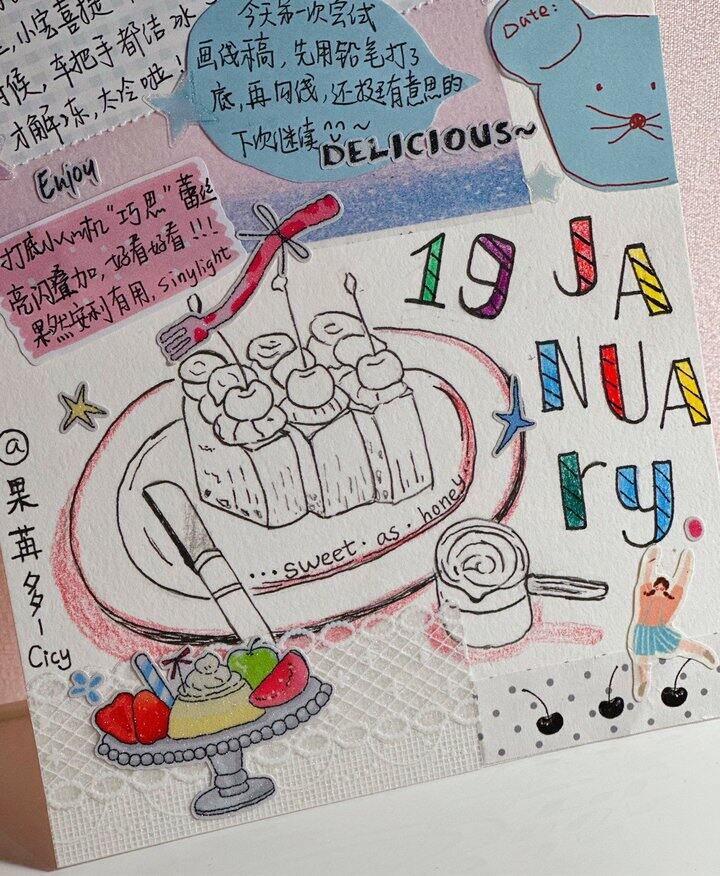 小宝喜提
候，车把手都结冰
才解冻，太冷啦！
今天第一次尝试
画线稿，先用铅笔打了
底，再勾线，还挺有意思的
下次继续~
DELICIOUS~
Date:
Enjoy
打底小心机"巧思"蕾丝
亮闪叠加，好看好看!!!
果然安利有用，sinylight
19 JA
NUA
ry.
...sweet·as·honey.
@果苒多
Cicy